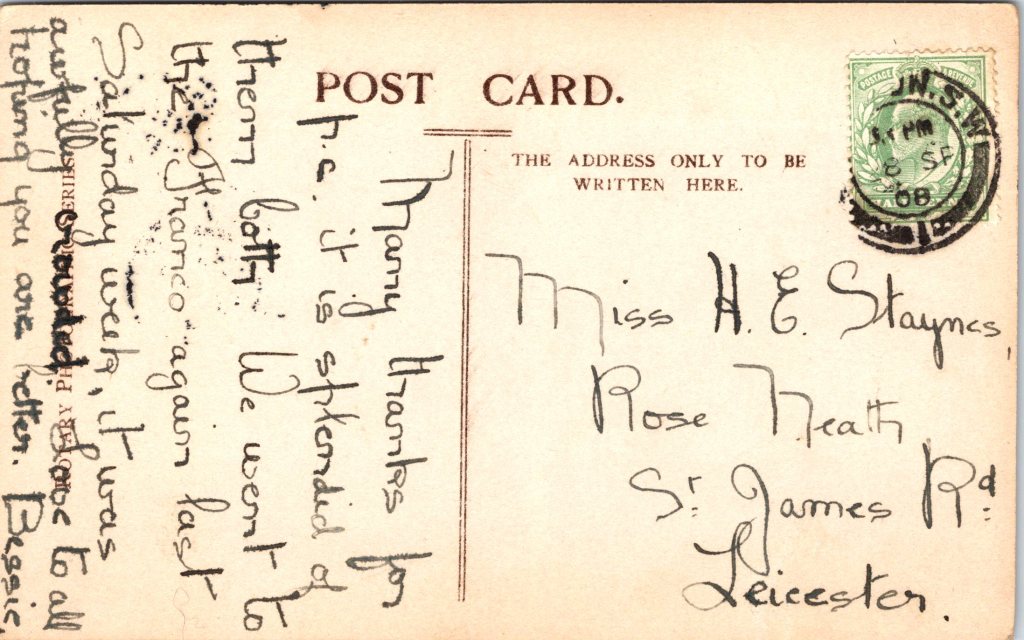 POST CARD.
THE ADDRESS ONLY TO BE
WRITTEN HERE.
Many thanks for
p.c. it is splendid of
them both We went to
the "Franco" again last
Saturday week, it was
awfully crowded. Love to all
hoping you are better. Bessie.
Miss H. E. Staynes,
Rose Neath
St. James Rd.
Leicester.
ROTARY PHOTOGRAPHIC SERIES
POSTAGE REVENUE
N.S.W.
PM
8 SP
08